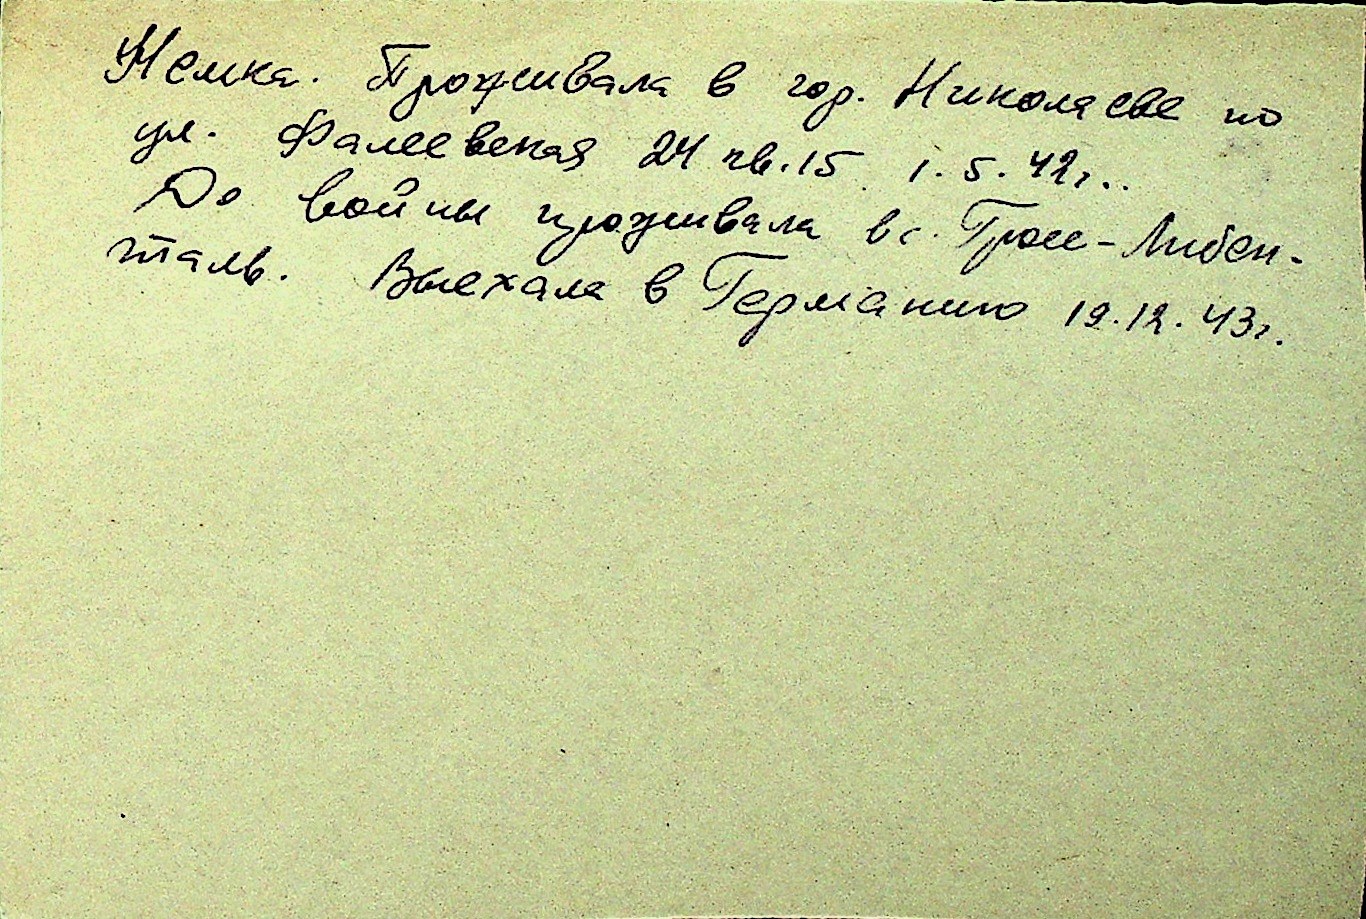 Немка. Проживала в гор. Николаеве по
ул. Фалеевская 24 кв. 15 1.5.42г..
До войны проживала в с. Гросс-Либен-
таль. Выехала в Германию 19.12.43г.